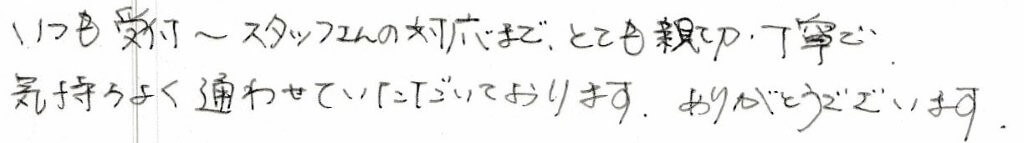 いつも受付〜スタッフさんの対応まで、とても親切・丁寧で、
気持ちよく通わせていただいております。ありがとうございます。